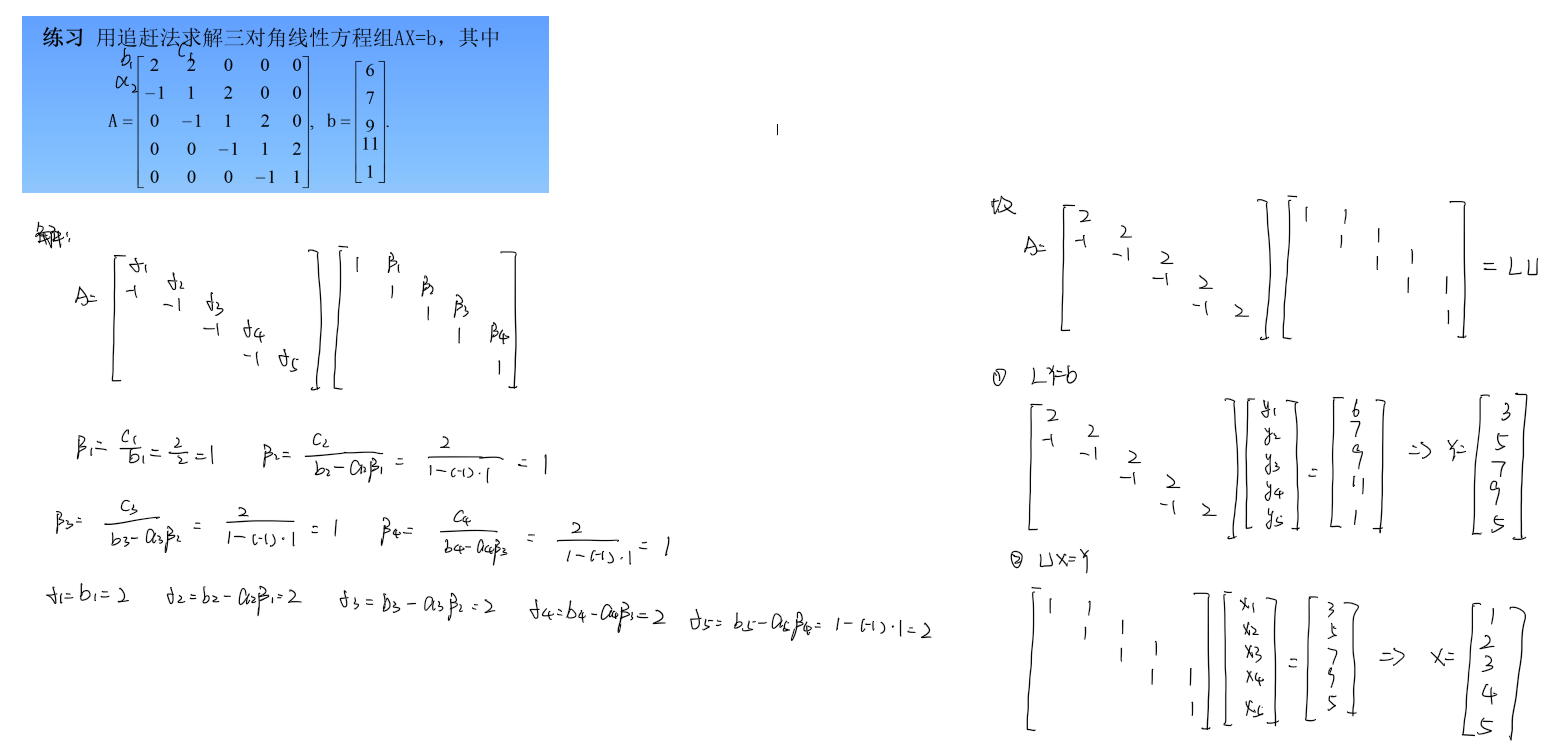 练习 用追赶法求解三对角线性方程组AX=b，其中
b₁ c₁
α₂
A = [ 2 2 0 0 0
-1 1 2 0 0
0 -1 1 2 0
0 0 -1 1 2
0 0 0 -1 1 ], b = [ 6
7
9
11
1 ].
解:
A= [ γ₁
-1 γ₂
-1 γ₃
-1 γ₄
-1 γ₅ ] [ 1 β₁
1 β₂
1 β₃
1 β₄
1 ]
β₁= c₁/b₁ = 2/2 =1 β₂= c₂/(b₂-a₂β₁) = 2/(1-(-1)·1) = 1
β₃= c₃/(b₃-a₃β₂) = 2/(1-(-1)·1) = 1 β₄= c₄/(b₄-a₄β₃) = 2/(1-(-1)·1) = 1
γ₁=b₁=2 γ₂=b₂-a₂β₁=2 γ₃=b₃-a₃β₂=2 γ₄=b₄-a₄β₃=2 γ₅=b₅-a₅β₄=1-(-1)·1=2
故
A= [ 2
-1 2
-1 2
-1 2
-1 2 ] [ 1 1
1 1
1 1
1 1
1 ] = LU
① LY=b
[ 2
-1 2
-1 2
-1 2
-1 2 ] [ y₁
y₂
y₃
y₄
y₅ ] = [ 6
7
9
11
1 ] => Y= [ 3
5
7
9
5 ]
② UX=Y
[ 1 1
1 1
1 1
1 1
1 ] [ x₁
x₂
x₃
x₄
x₅ ] = [ 3
5
7
9
5 ] => X= [ 1
2
3
4
5 ]